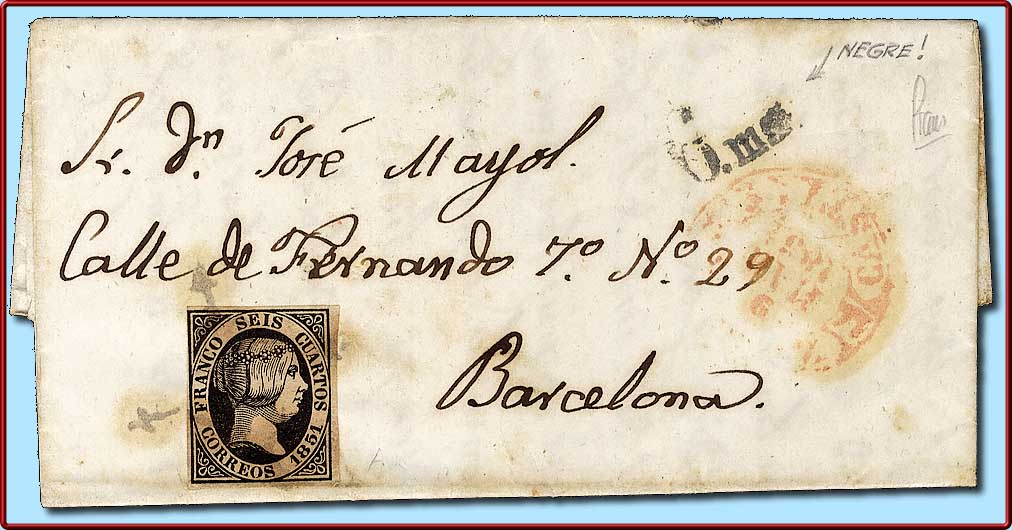 NEGRE!
6.ms
Sr. Dn. José Mayol.
Calle de Fernando 7.º N.º 29
Barcelona.
FRANCO SEIS CUARTOS
CORREOS 1851